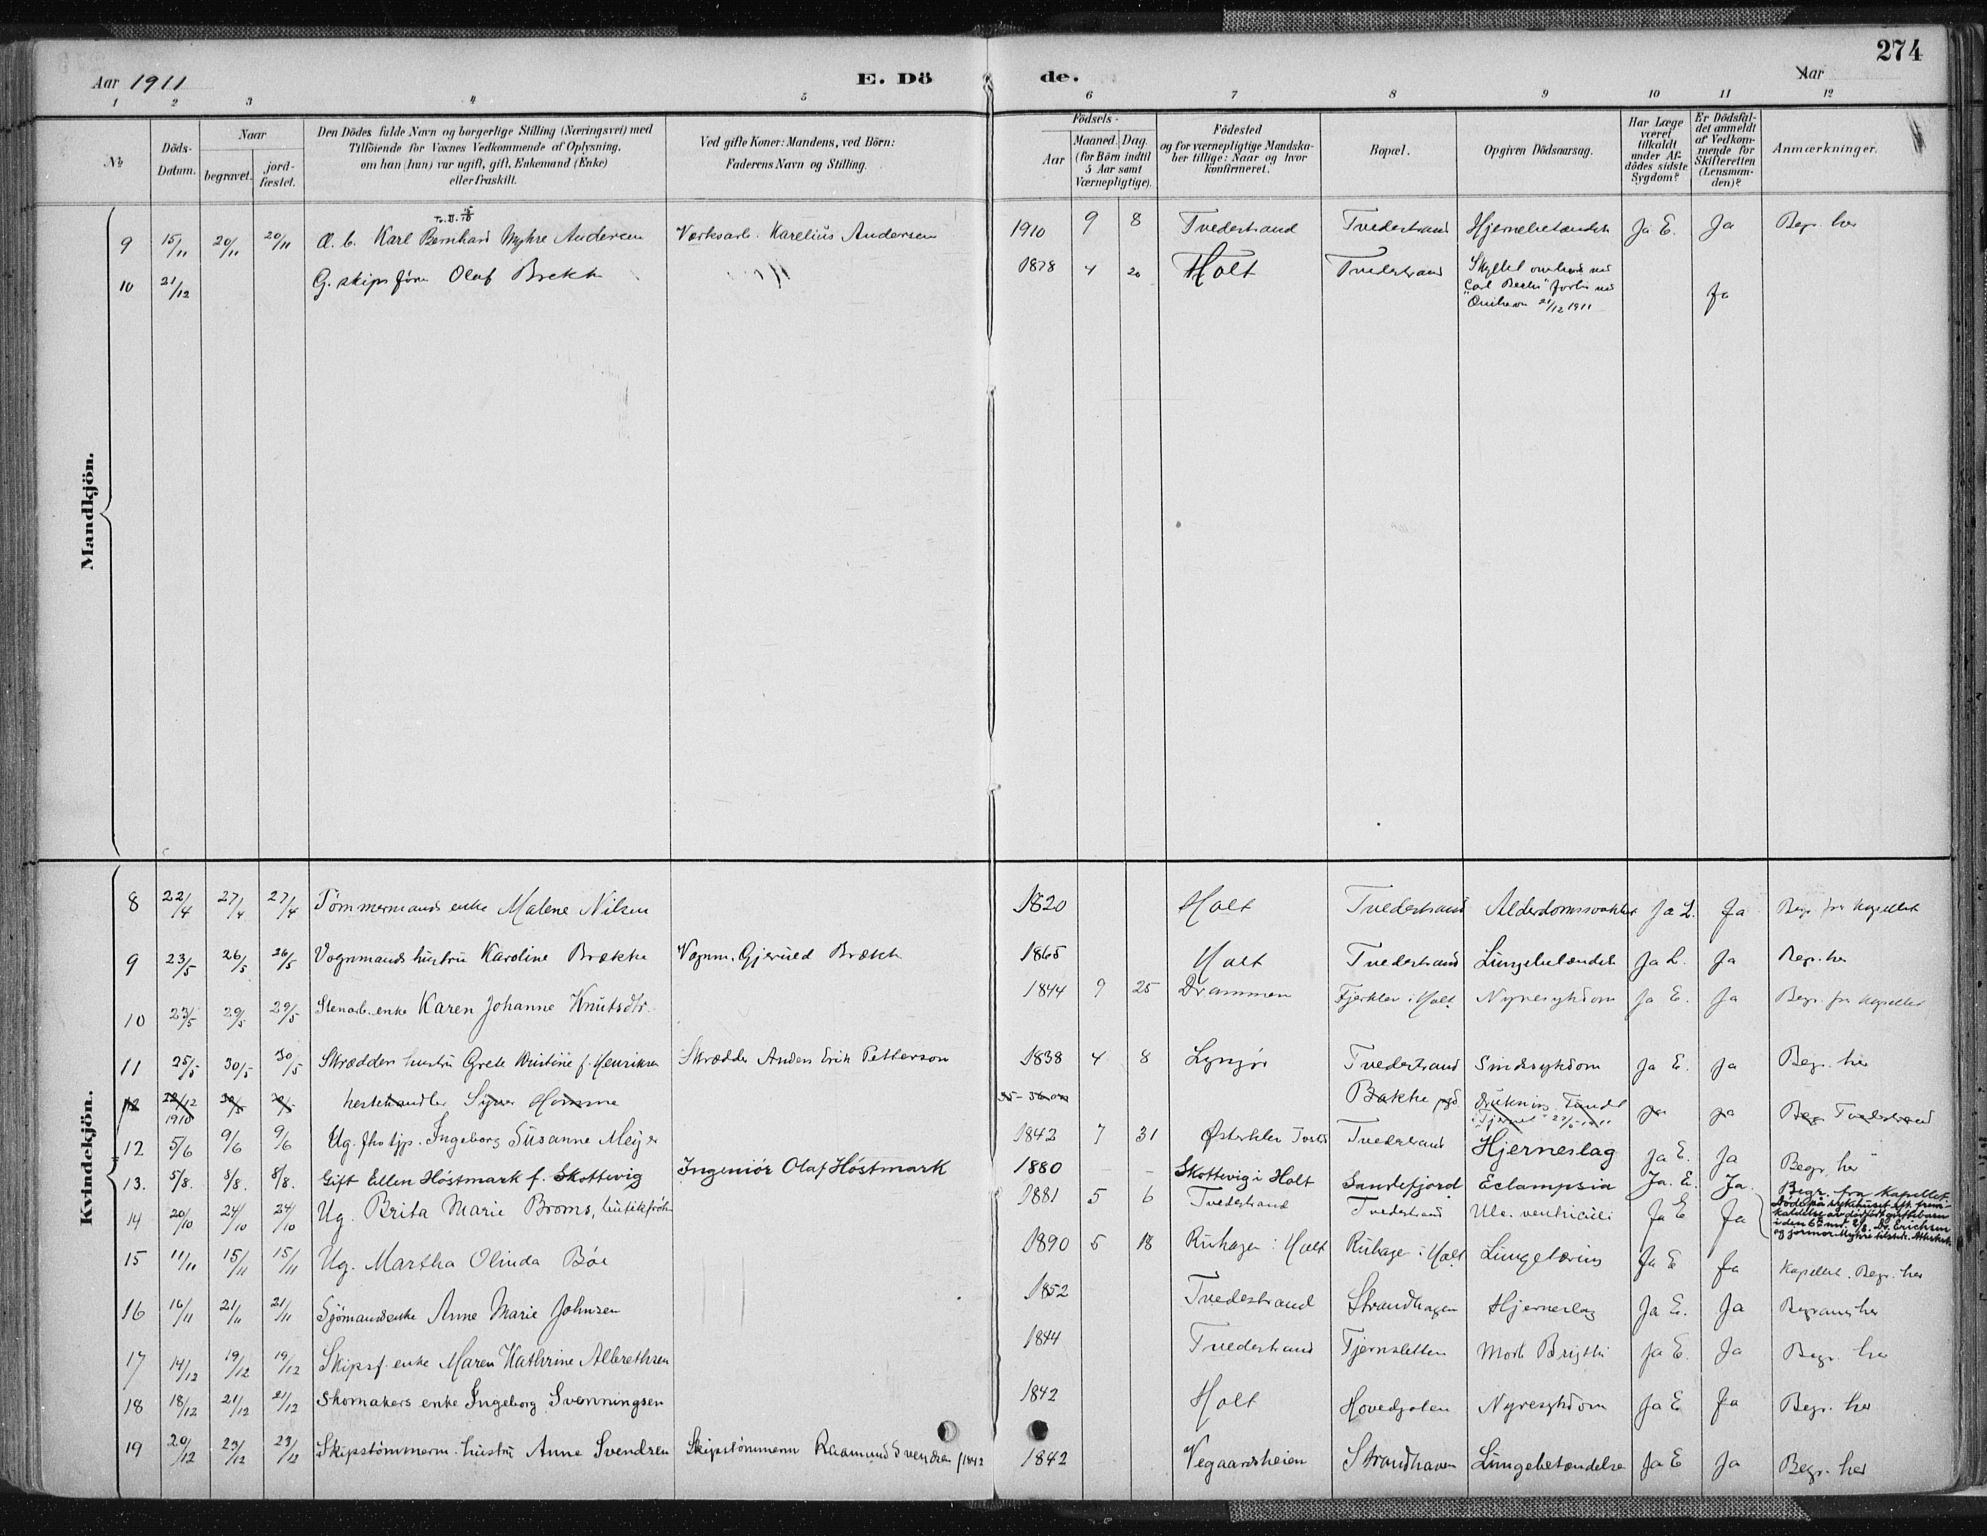 274
Aar 1911
E. Dö
de.
Aar
1 2 3 4 5 6 7 8 9 10 11 12
№
Döds-
Datum.
Naar
begravet.
jord-
fæstet.
Den Dödes fulde Navn og borgerlige Stilling (Næringsvei) med
Tilföiende for Voxnes Vedkommende af Oplysning,
om han (hun) var ugift, gift, Enkemand (Enke)
eller fraskilt.
Ved gifte Koner: Mandens, ved Börn:
Faderens Navn og Stilling.
Födsels-
Aar
Maaned. Dag.
(for Börn indtil
5 Aar samt
Værnepligtige).
Födested
og for værnepligtige Mandska-
ber tillige: Naar og hvor
konfirmeret.
Bopæl.
Opgiven Dödsaarsag.
Har Læge
været
tilkaldt
under Af-
dödes sidste
Sygdom?
Er Dödsfal-
det anmeldt
af Vedkom-
mende for
Skifteretten
(Lensman-
den)?
Anmærkninger.
Mandkjön.
9 15/11 20/11 20/11 Karl Bernhard Myhre Andersen Værksarb. Karelius Andersen 1910 9 8 Tvedestrand Tvedestrand Hjernebetændels Ja E. Ja Begr. her
10 21/12 G. skipsfører Olaf Brekke 1878 4 20 Holt Tvedestrand Skyllet overbord ved 21/12 1911 Ja
Kvindekjön.
8 22/4 27/4 27/4 Tømmermands enke Malene Nilsen 1820 Holt Tvedestrand Alderdomssvakhet Ja L. Ja Begr. fra Kapellet
9 23/5 26/5 26/5 Vognmands hustru Karoline Brække Vognm. Gjeruld Brække 1865 Holt Tvedestrand Lungebetændels Ja L. Ja Begr. her
10 23/5 29/5 29/5 Stenarb. enke Karen Johanne Knutsdtr. 1844 9 25 Drammen Fjerkler i Holt Nyresykdom Ja E. Ja Begr. fra Kapellet
11 25/5 30/5 30/5 Skrædders hustru Grete Kristine f. Henriksen Skrædder Anders Erik Petterson 1838 4 8 Lyngør Tvedestrand Sindssykdom Ja E. Ja Begr. her
12 22/12 1910 hestehandler Syver Homme Bakke pgd Druknin. Fundet i "Tjernet" ja ja Begr Tvedestrand
12 5/6 9/6 9/6 Ug. Ingeborg Susanne Meyer 1842 7 31 Tvedestrand Hjerneslag Ja E. Ja Begr. her
13. 5/8. 8/8. 8/8. Gift Ellen Höstmark f. Skottevig Ingeniör Olaf Höstmark 1880 – – Skottevig i Holt Sandefjord Eclampsia Ja. E. Ja. Begr. fra Kapellet.
Döde på sykehuset eft. frem-
kaldelse av dödfödt guttebarn
i den 6te md. 2/8. Dr. Erichsen
og jormor Myhre tilstede.
14 20/10 24/10 24/10 Ug. Brita Marie Broms, butikfrøken 1881 5 6 Tvedestrand Tvedestrand Ulc. ventriculi Ja E Ja
15 11/11 15/11 15/11 Ug. Martha Olinda Bøe 1890 5 18 Ruhagen i Holt Ruhage i Holt Lungetæring Ja E Ja Kapellet. Begr. her
16 16/11 21/11 21/11 Sjömandsenke Anne Marie Johnsen 1852 Tvedestrand Strandhagen Hjerneslag Ja E. Ja Begraves her
17 14/12 19/12 19/12 Skipsf. enke Maren Kathrine Albrethsen 1844 Tvedestrand Tjernsletten Morb. Brigthi Ja E. Ja Begr. her
18 18/12 21/12 21/12 Skomakers enke Ingeborg Svenningsen 1842 Holt Hovedgaten Nyresykdom Ja E Ja Begr. her
19 20/12 23/12 23/12 Skipstømmerm. hustru Anne Svendsen Skipstømmerm Raamund Svendsen f 1842 1842 Vegaardsheien Strandhaven Lungebetændelse Ja E Ja Begr. her